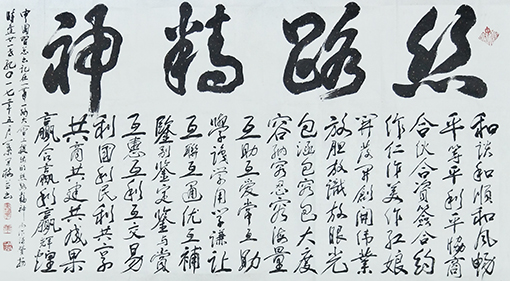 丝路精神
和谐和顺和风畅
平等平利平协商
合伙合资签合约
作仁作美作红娘
开发开创开伟业
放胆放识放眼光
包涵包容包大度
容纳容忍容海量
互助互爱常互助
学识学用学谦让
互联互通优互补
鉴别鉴定鉴与赏
互惠互利互交易
利国利民利共享
共商共建共成果
赢合赢利赢辉煌
中国习总书记在一带一路
〇一七年五月